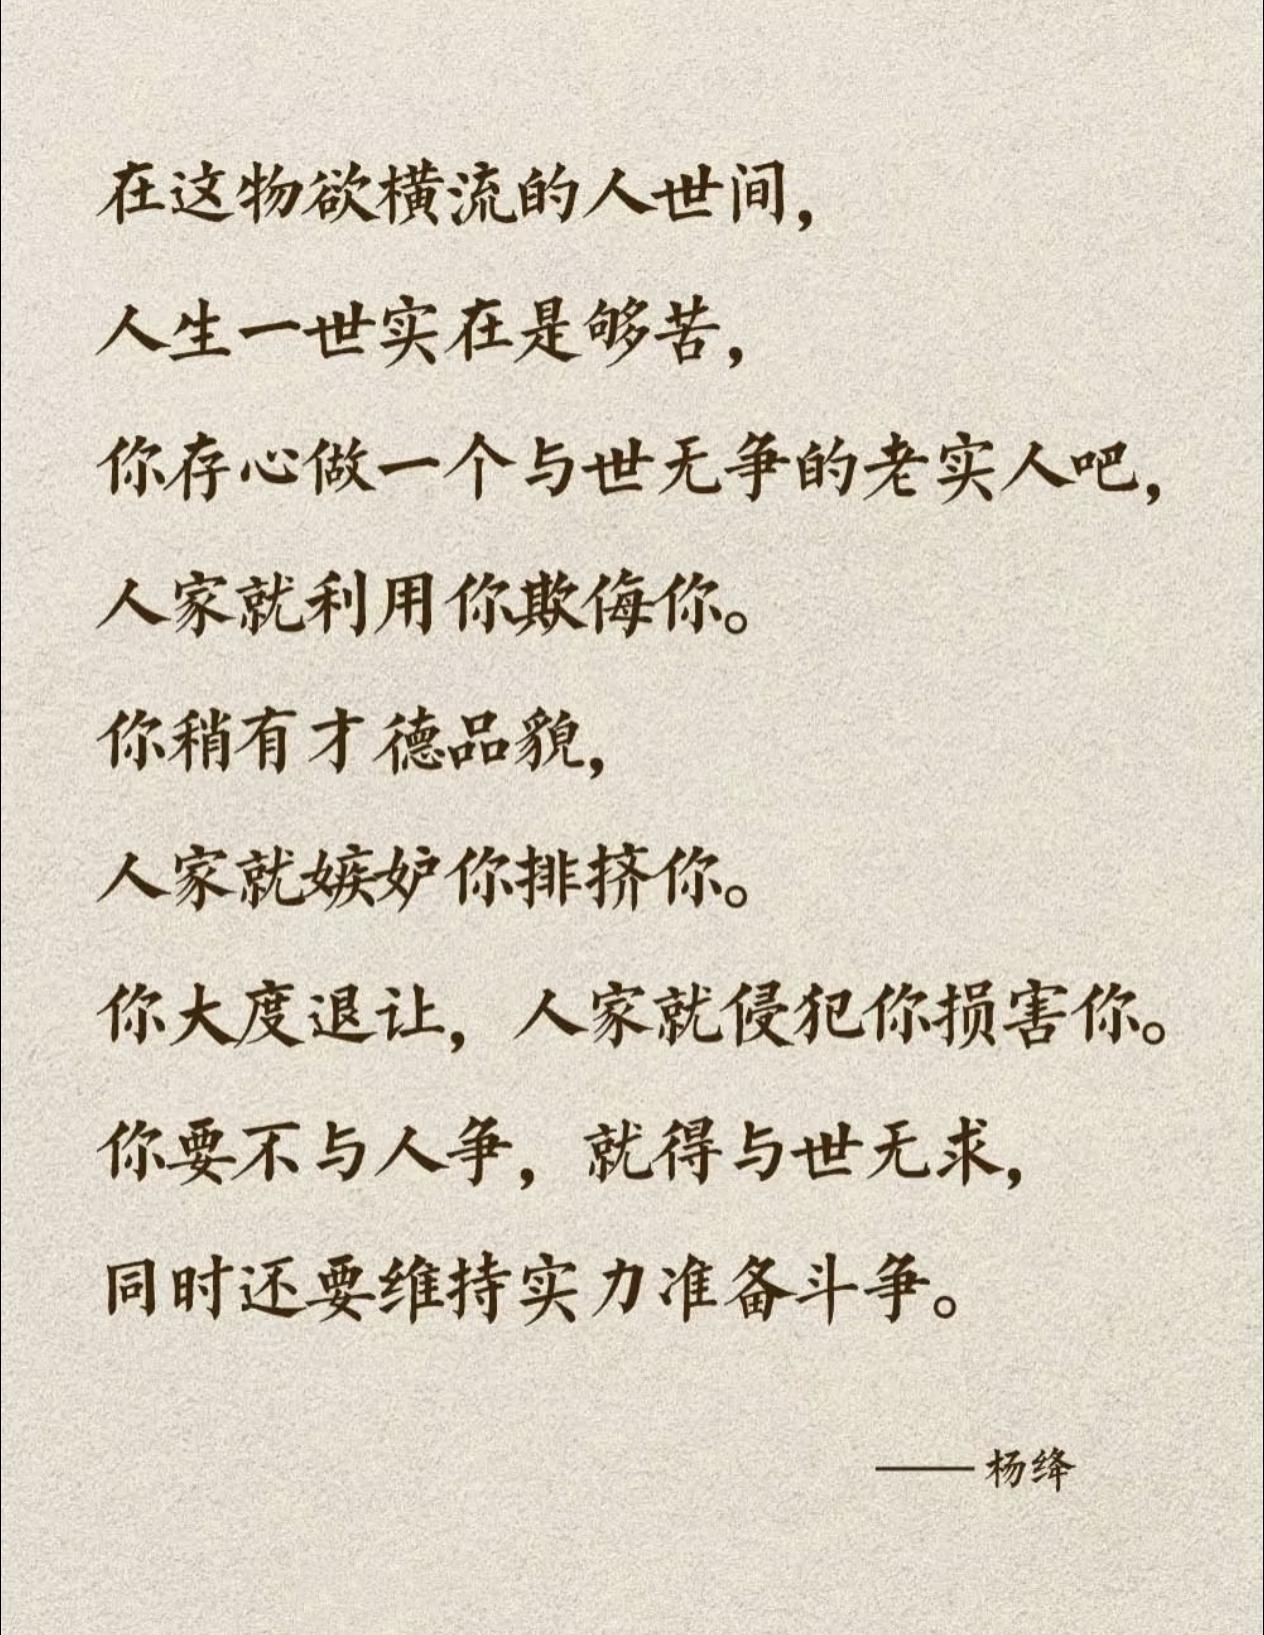 在这物欲横流的人世间，
人生一世实在是够苦，
你存心做一个与世无争的老实人吧，
人家就利用你欺侮你。
你稍有才德品貌，
人家就嫉妒你排挤你。
你大度退让，人家就侵犯你损害你。
你要不与人争，就得与世无求，
同时还要维持实力准备斗争。
——杨绛